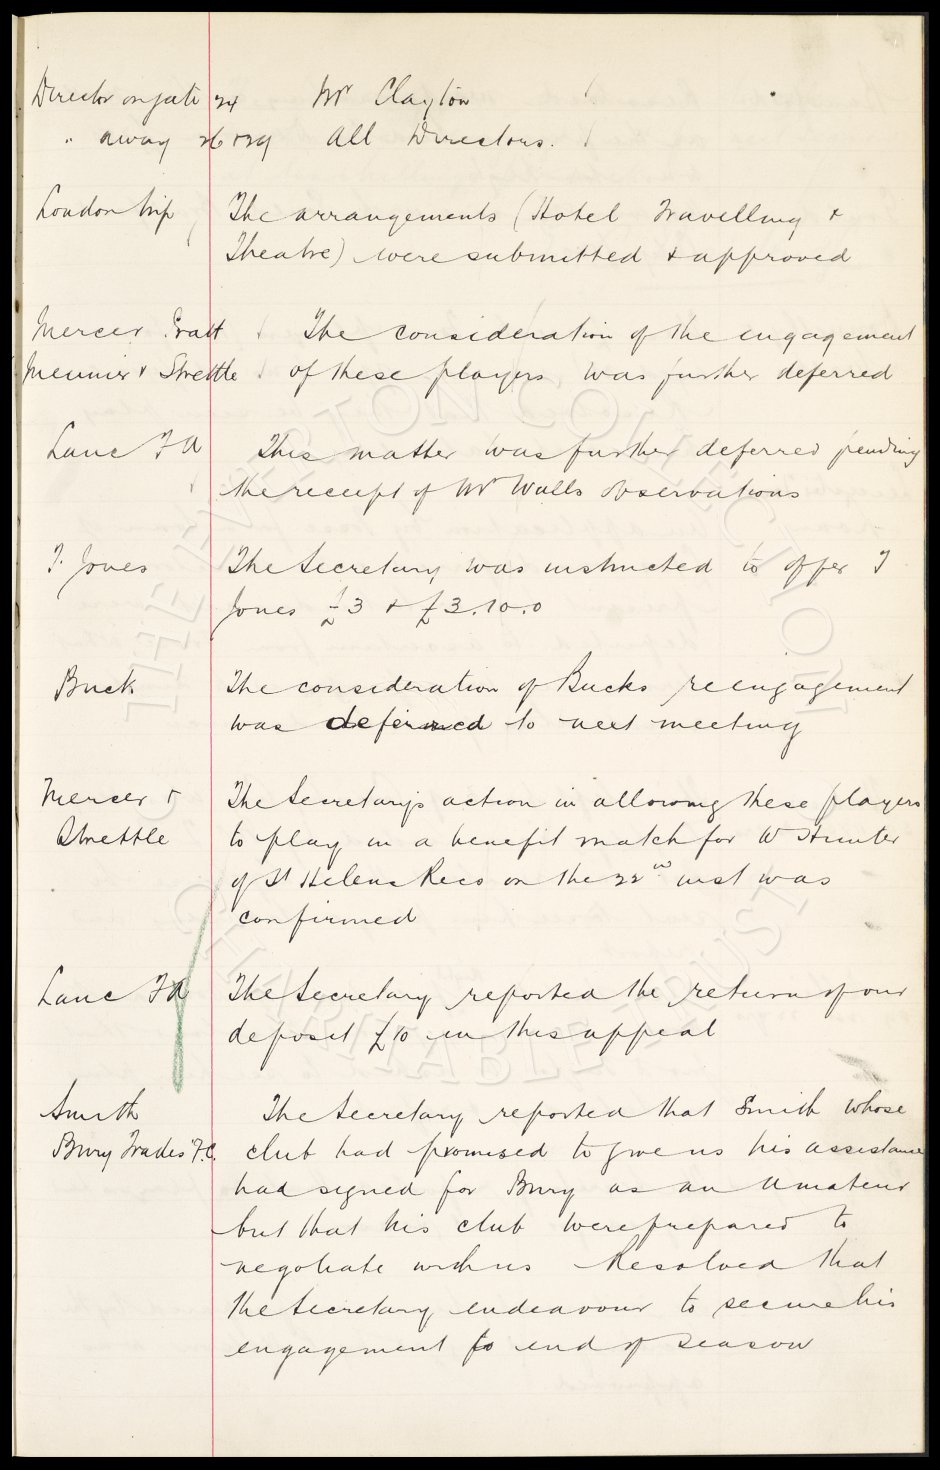 Director on gate 24 Mr Clayton
" away 26 & 29 All Directors.
London trip The arrangements (Hotel Travelling &
Theatre) were submitted & approved
Mercer Pratt The consideration of the engagement
Meunier & Strettle of these players was further deferred
Lanc F A This matter was further deferred pending
the receipt of Mr Walls observations
T. Jones The Secretary was instructed to offer T
Jones £3 & £3.10.0
Buck The consideration of Bucks reengagement
was deferred to next meeting
Mercer & The Secretary's action in allowing these players
Strettle to play in a benefit match for W Hunter
of St Helens Recs on the 22nd inst was
confirmed
Lanc FA The Secretary reported the return of our
deposit £10 in this appeal
Smith The Secretary reported that Smith whose
Bury Trades F.C. club had promised to give us his assistance
had signed for Bury as an Amateur
but that his club were prepared to
negotiate with us Resolved that
the Secretary endeavour to secure his
engagement to end of season
THE EVERTON COLLECTION
CHARITABLE TRUST